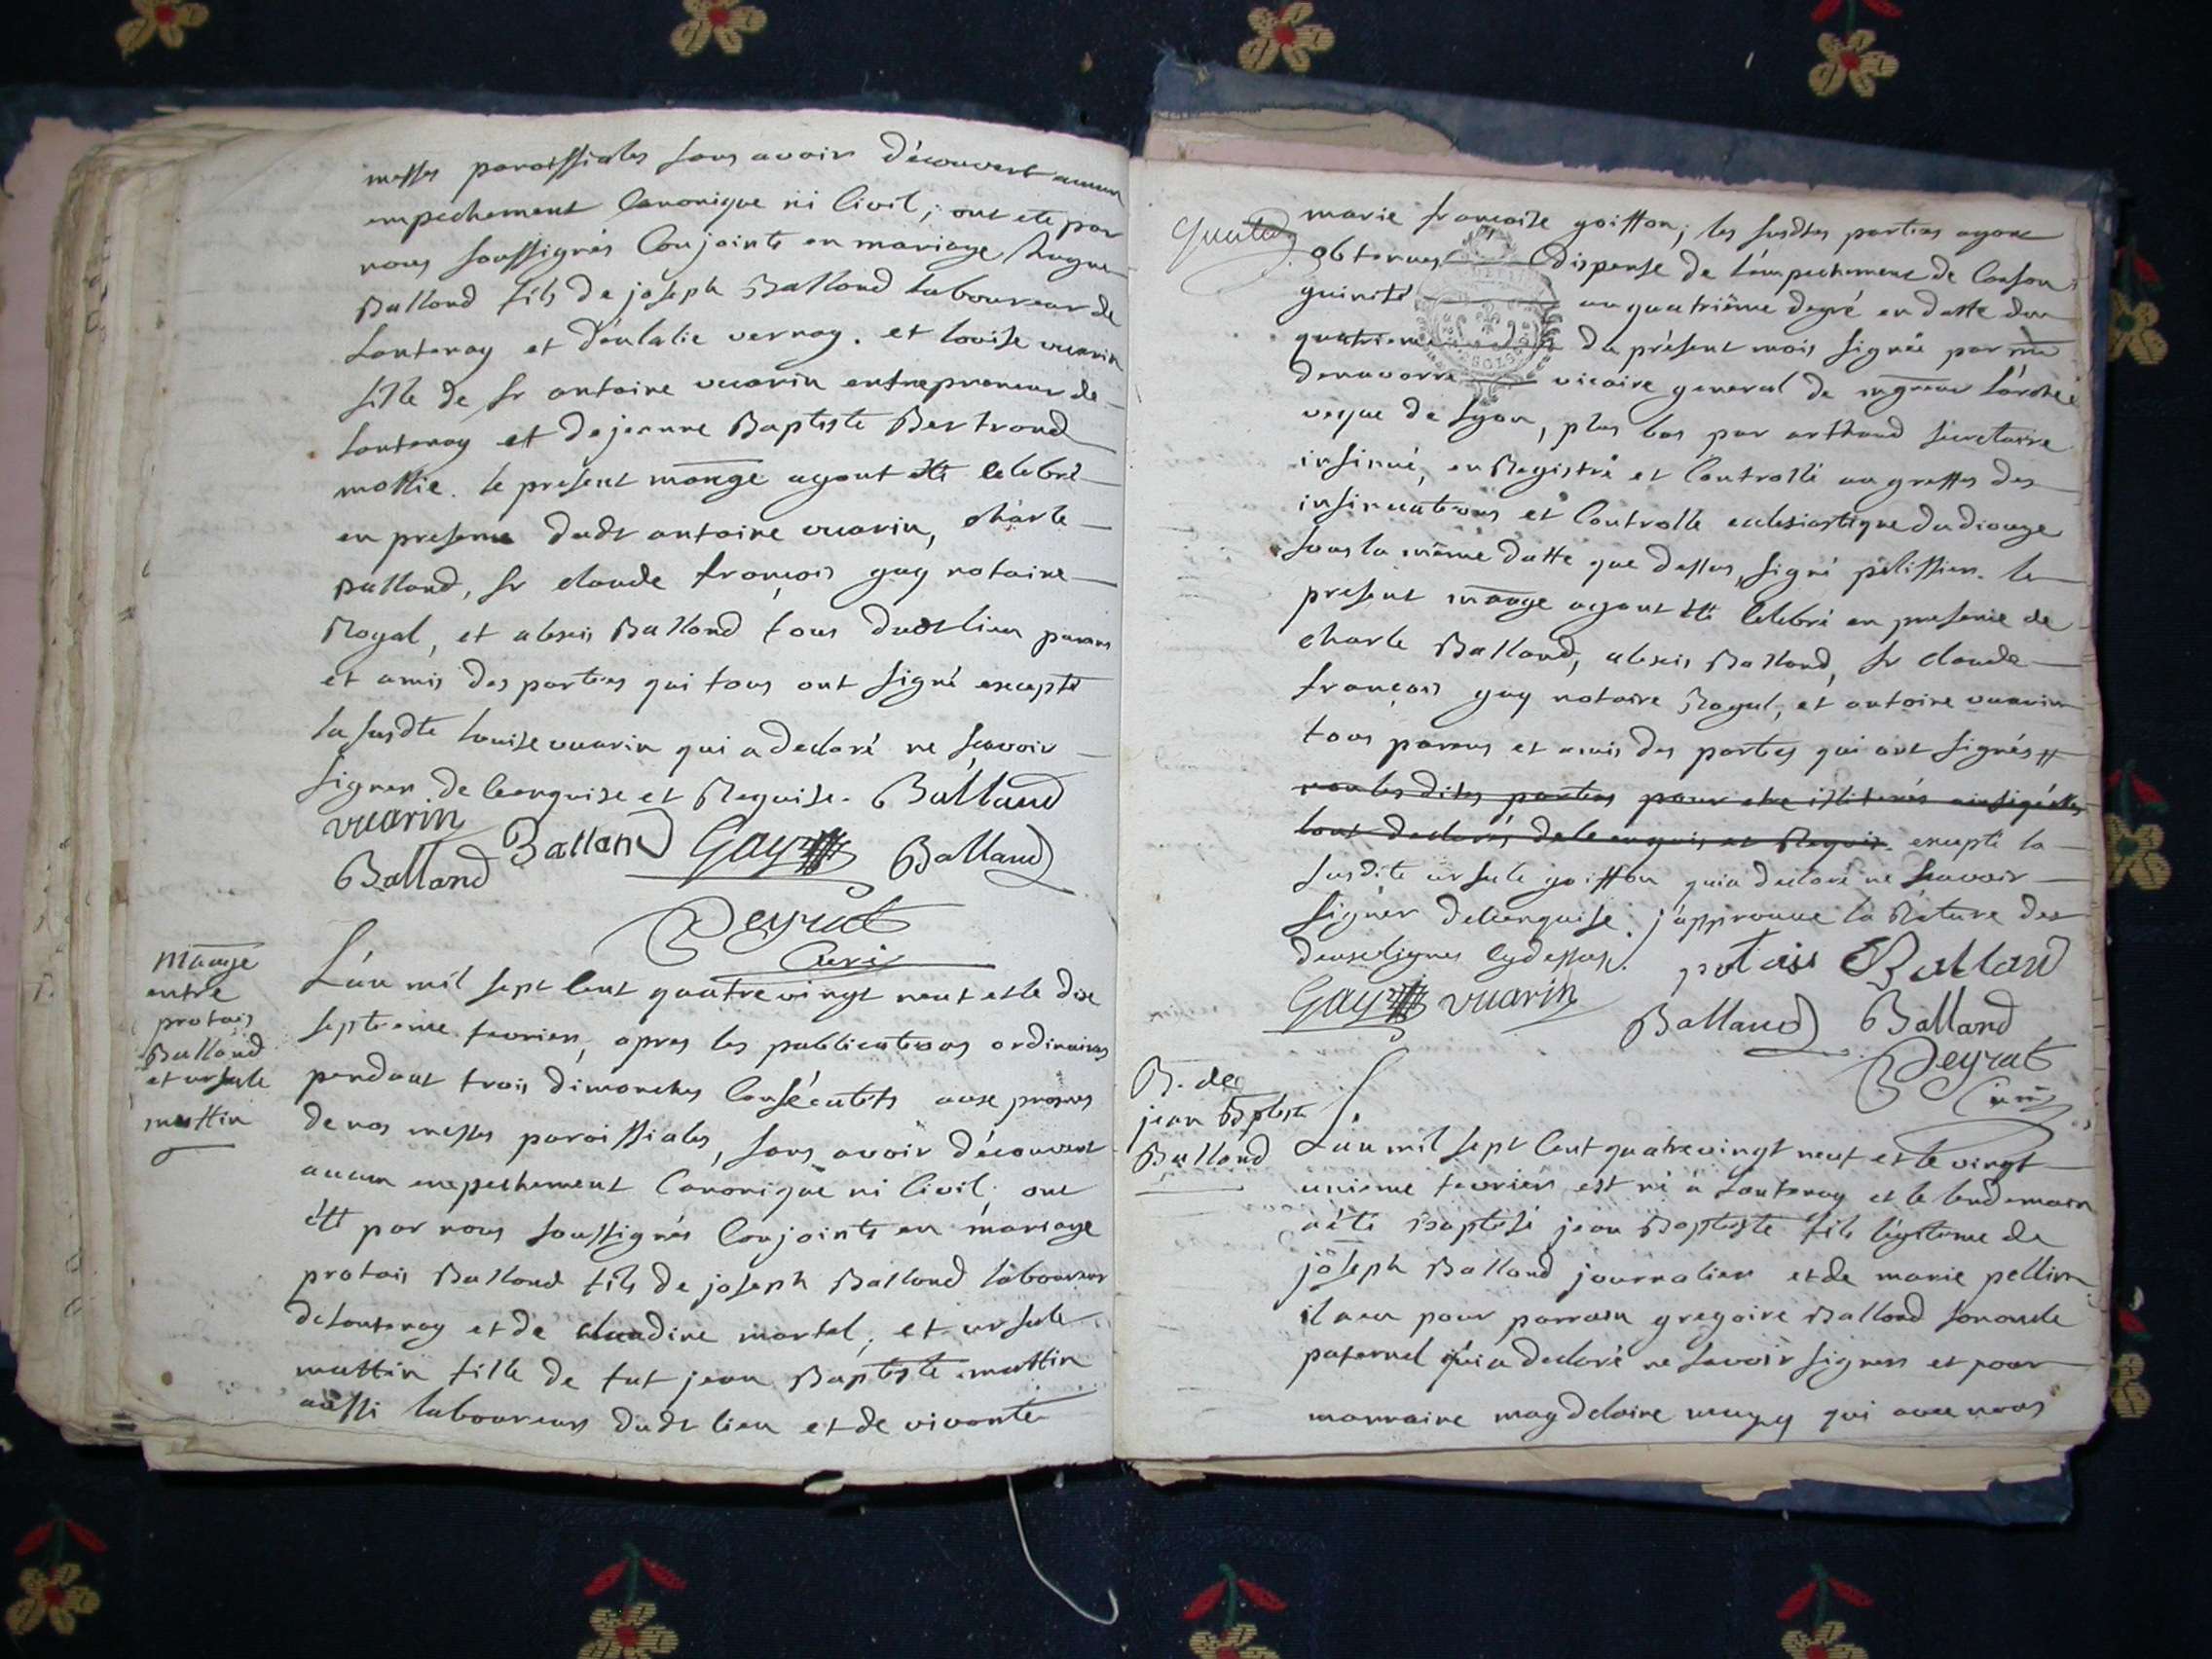 messes paroissiales sans avoir découvert aucun
empechement Canonique ni Civil; ont ete par
nous soussignés Conjoints en mariage hugue
Balland fils de joseph Balland laboureur de
Lantenay et d'eulalie vernay. et louise vuarin
fille de sr antoine vuarin entrepreneur de
Lantenay et de jeanne Baptiste Bertrand
mollie. le present mariage ayant été Celebré
en presence dudt antoine vuarin, charle
Balland, sr claude françois gay notaire
Royal, et alexis Balland tous dudt lieu parans
et amis des parties qui tous ont signé excepté
la susdte louise vuarin qui a declaré ne sçavoir
signer de Ce enquise et Requise. Balland
vuarin Balland Gay Balland
Balland
Peyrat
Curé
Mariage
entre
protais
Balland
et ursule
mattin
L'an mil sept Cent quatre vingt neuf et le dix
septieme fevrier, apres les publications ordinaires
pendant trois dimanches Consécutifs aux prones
de nos messes paroissiales, sans avoir découvert
aucun empechement Canonique ni Civil; ont
été par nous soussignés Conjoints en mariage
protais Balland fils de joseph Balland laboureur
de Lantenay et de claudine martel, et ursule
mattin fille de fut jean Baptiste mattin
aussi laboureur dudt lieu et de vivante
marie françoise goiffon; les susdtes parties ayant
obtenues dispense de l'empechement de Conson
guinité au quatrième degré en datte du
quatrieme du présent mois signée par mr
denavarre vicaire general de mgneur l'arche
veque de Lyon, plus bas par arthaud secretaire
insinué, en Registré et Controllé au greffes des
insinuations et Controlle eclesiastique du dioceze
sous la même datte que dessus, signé pelissier. le
present mariage ayant été Celebré en presence de
charle Balland, alexis Balland, sr claude
françois gay notaire Royal, et antoine vuarin
tous parens et amis des parties qui ont signés
non les dites parties pour etre illiterés ainsi qu'elles
l'ont declarés de Ce enquis et Requis. excepté la
susdite ursule goiffon qui a declaré ne Scavoir
signer de Ce enquise. j'approuve la Rature des
deux lignes Cy dessus. potais Balland
Gay vuarin Balland Balland
Peyrat
Curé
B. de
jean Bptiste
Balland
L'an mil sept Cent quatre vingt neuf et le vingt
unieme fevrier est né à Lantenay et le lendemain
a été Baptisé jean Baptiste fils légitime de
joseph Balland journalier et de marie pellin
il a eu pour parrain gregoire Balland son oncle
paternel qui a declaré ne savoir signer et pour
marraine magdelaine qui avec nous